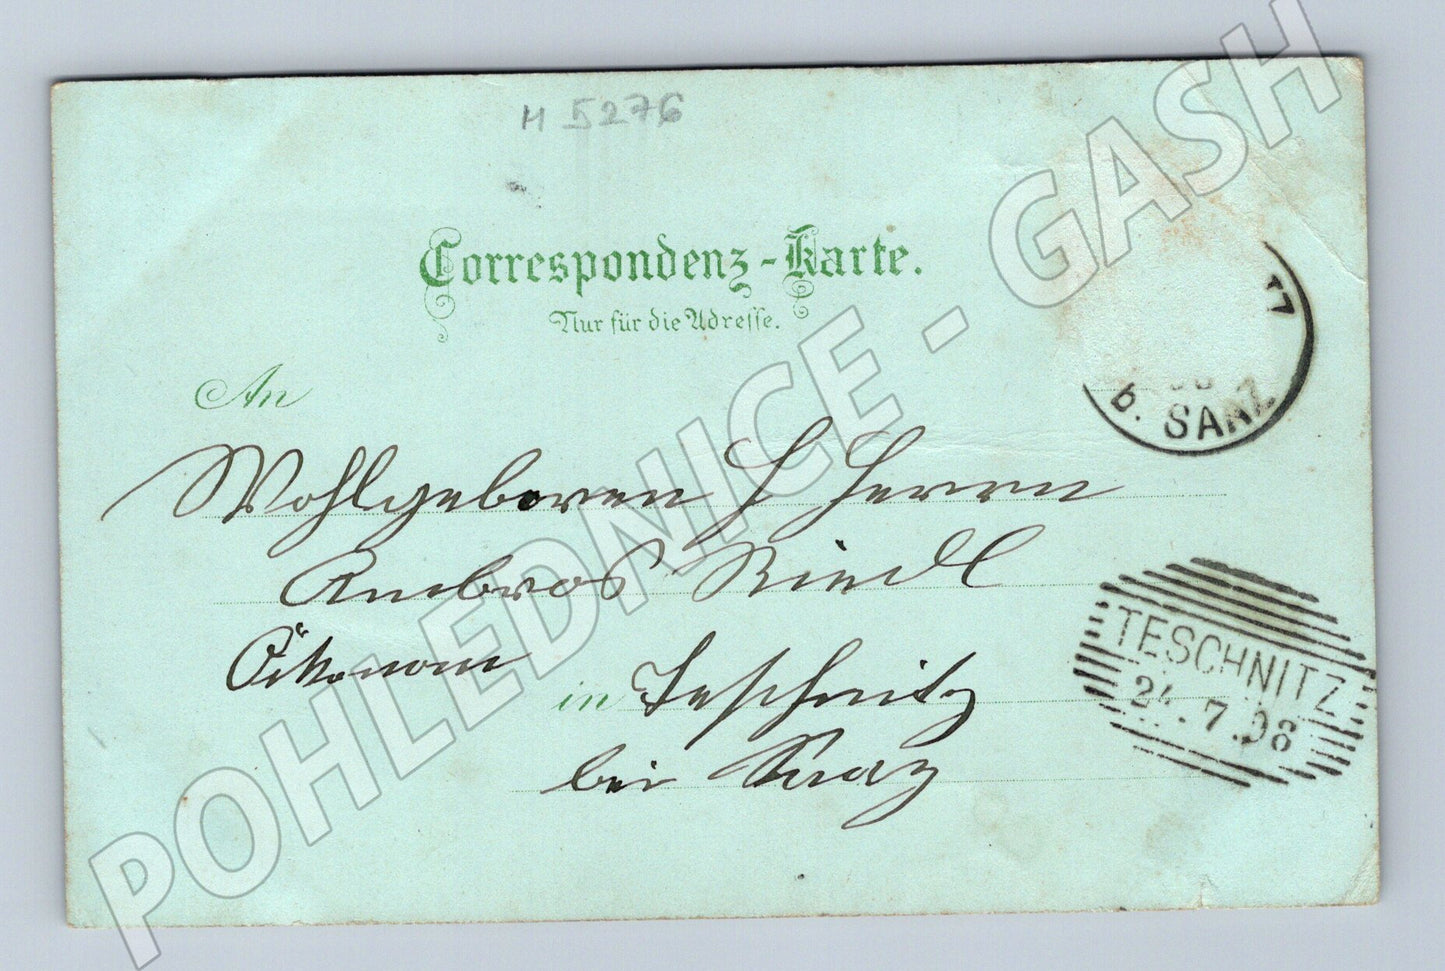 H 5276
Correspondenz-Karte.
Nur für die Adresse.
An
Wohlgeboren H Herrn
Ambros Riedl
Ökonom
in Teschnitz
bei Saaz
b. SAAZ
TESCHNITZ
24.7.98
POHLEDNICE - GASH